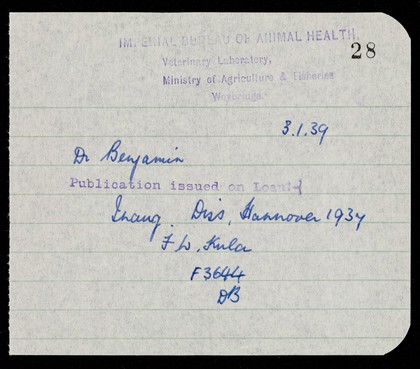 IMPERIAL BUREAU OF ANIMAL HEALTH,
28
Veterinary Laboratory,
Ministry of Agriculture & Fisheries
Weybridge.
3.1.39
Dr Benjamin
Publication issued on Loan:-
Inaug. Diss, Hannover 1937
F. W. Kula
F3644
DB